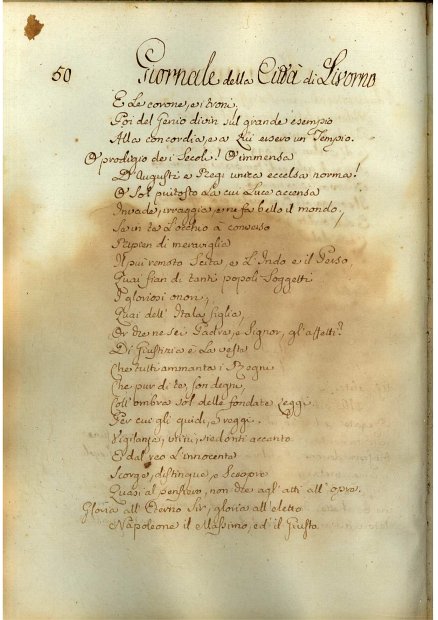 50 Giornale della Città di Livorno
E Le corone, e i troni,
Poi del Genio divin sul grande esempio
Alla concordia, e a Lui essero un Tempio.
O prodigio dei Secoli! O immensa
D'Augusti e Regi unica eccelsa norma!
O Sol piutosto La cui Luce accensa
Invade, irraggia, e ne fa bello il mondo,
Se in te L'occhio à converso
Stupen di meraviglia
Il più remoto Scita, e L'Indo e il Perso,
Quai fian di tanti popoli Soggetti
I gloriosi onori,
Quai dell' Itala figlia,
Or che ne sei Padre, e Signor, gl'affetti?
Di Giustizia è La vesta
Che tutti ammanta i Regni
Che pur di te, son degni,
Coll'ombra sol delle fondate Leggi.
Per cui gli guidi, e reggi.
Vigilanza, virtù, siedonti accanto
E dal reo L'innocente
Scorge, distingue, e Scuopre
Quasi al pensiero, non che agl' atti all' opre.
Gloria all' Eterno Sir, gloria all'eletto
Napoleone il Massimo, ed il Giusto.